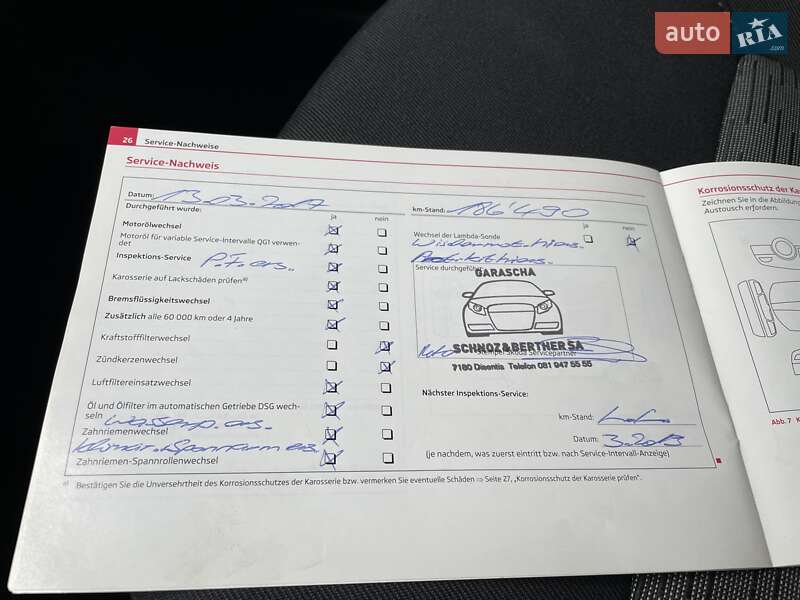 auto RIA.com
26 Service-Nachweise
Service-Nachweis
Datum: 13.03.2017
Durchgeführt wurde:
ja nein
Motorölwechsel
Motoröl für variable Service-Intervalle QG1 verwen-
det
Inspektions-Service P.F.ers.
Karosserie auf Lackschäden prüfen a)
Bremsflüssigkeitswechsel
Zusätzlich alle 60 000 km oder 4 Jahre
Kraftstofffilterwechsel
Zündkerzenwechsel
Luftfiltereinsatzwechsel
Öl und Ölfilter im automatischen Getriebe DSG wech-
seln Wasserp.ers.
Zahnriemenwechsel
Zahnriemen-Spannrollenwechsel
km-Stand: 186'490
ja nein
Wechsel der Lambda-Sonde
Service durchgeführt
GARASCHA
SCHNOZ&BERTHER SA
Stempel Škoda Servicepartner
7180 Disentis Telefon 081 947 55 55
Nächster Inspektions-Service:
km-Stand:
Datum: 3.2019
(je nachdem, was zuerst eintritt bzw. nach Service-Intervall-Anzeige)
a) Bestätigen Sie die Unversehrtheit des Korrosionsschutzes der Karosserie bzw. vermerken Sie eventuelle Schäden ⇒ Seite 27, „Korrosionsschutz der Karosserie prüfen".
Korrosionsschutz der Ka
Zeichnen Sie in die Abbildung
Austausch erfordern.
Abb. 7 K